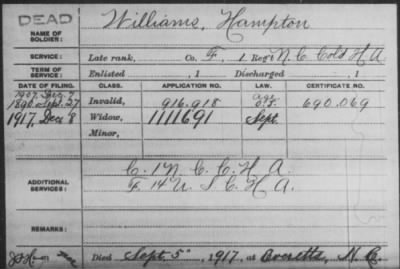 DEAD
NAME OF SOLDIER: Williams, Hampton
SERVICE: Late rank, Co. F, 1 Reg't N. C. Cold H A
TERM OF SERVICE: Enlisted , 1 Discharged , 1
DATE OF FILING. CLASS. APPLICATION NO. LAW. CERTIFICATE NO.
1890. Sept. 27 Invalid, 916.918 690.069
1917, Dec 8 Widow, 1111691 Sept.
Minor,
ADDITIONAL SERVICES: C. 1 N. C. C. H. A.
F 14 U. S. C. H. A.
REMARKS:
Died Sept. 5", 1917, at Everetts, N. C.